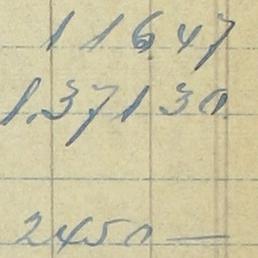 116.47
1.371 30
2450 —